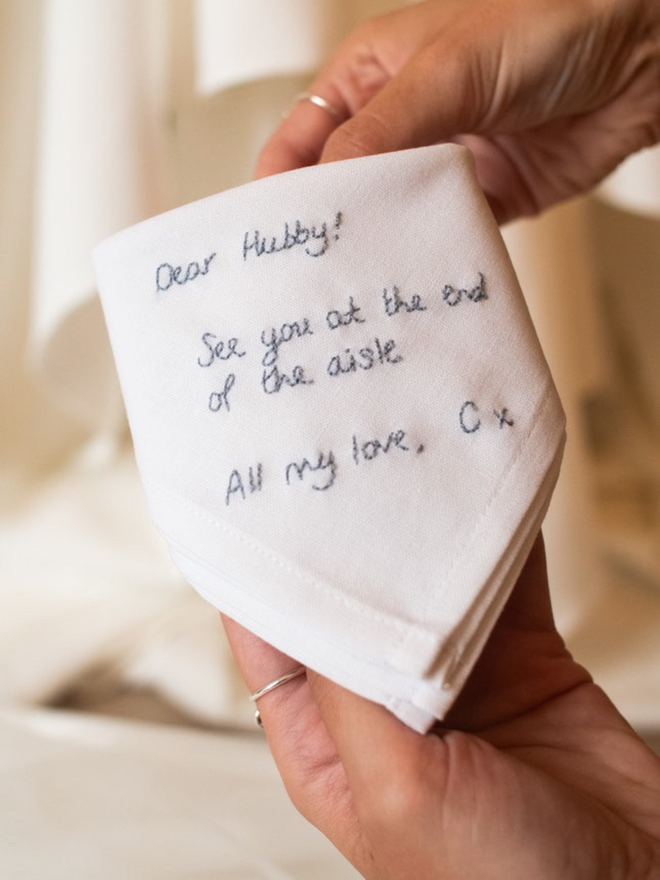 Dear Hubby!
See you at the end
of the aisle
All my love, C x